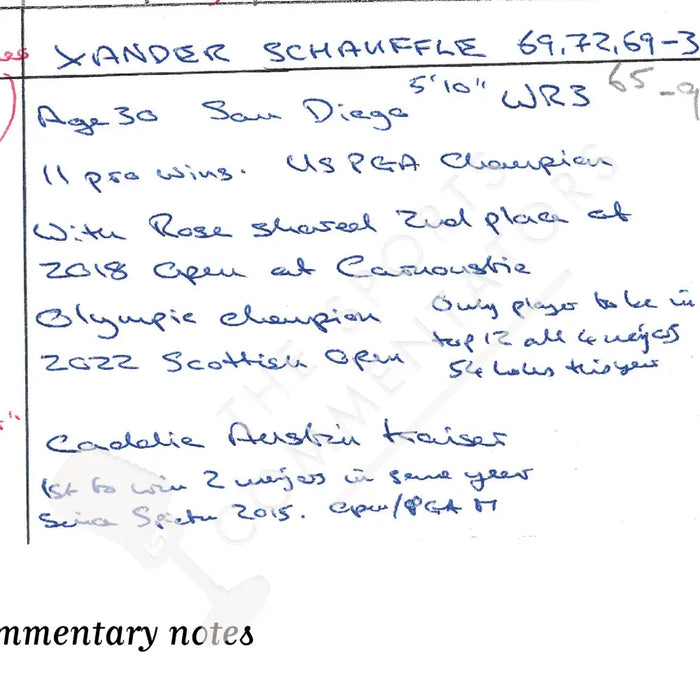 XANDER SCHAUFFLE 69,72,69-3
65-9
Age 30 San Diego 5'10" WR3
11 pro wins. US PGA Champion
With Rose shared 2nd place at
2018 Open at Carnoustie
Olympic champion
2022 Scottish Open
Only player to be in
top 12 all 4 majors
54 holes this year
Caddie Austin Kaiser
1st to win 2 majors in same year
Since Spieth 2015. Open/PGA
THE SPORTS
COMMENTATORS
mmentary notes